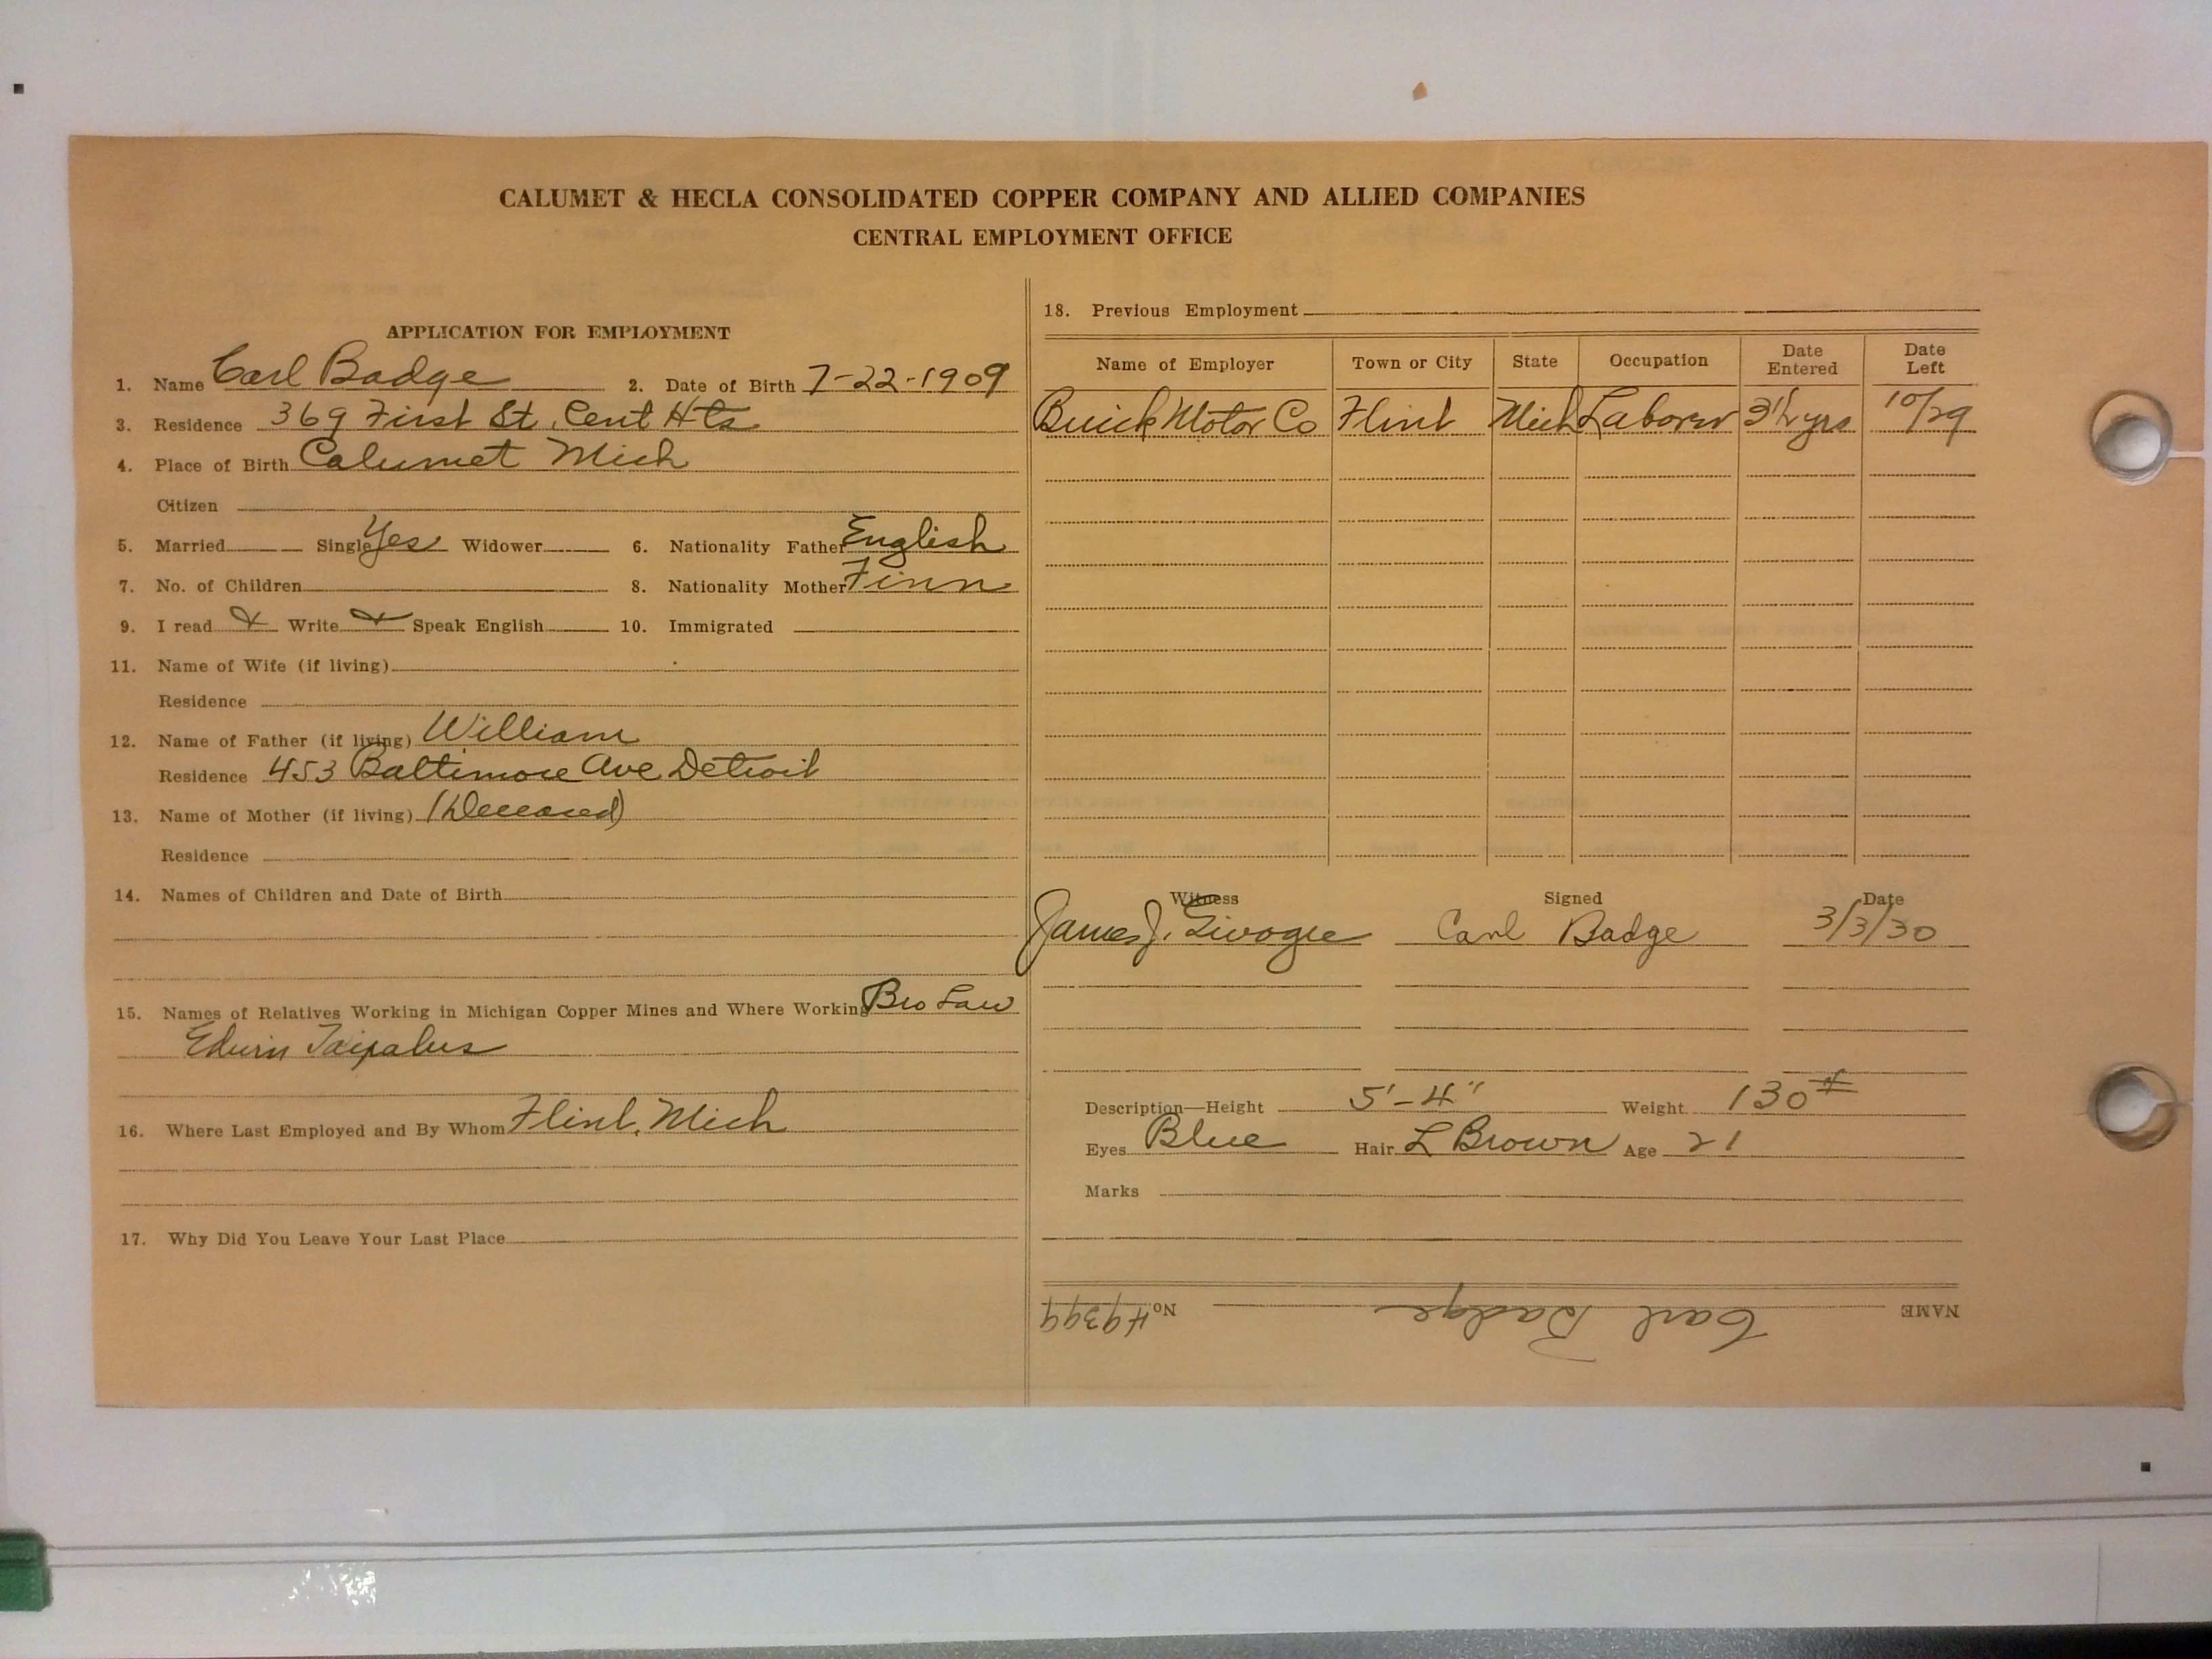 CALUMET & HECLA CONSOLIDATED COPPER COMPANY AND ALLIED COMPANIES
CENTRAL EMPLOYMENT OFFICE
APPLICATION FOR EMPLOYMENT
1. Name Carl Badge 2. Date of Birth 7-22-1909
3. Residence 369 First St, Cent Hts
4. Place of Birth Calumet Mich
Citizen
5. Married Single Yes Widower 6. Nationality Father English
7. No. of Children 8. Nationality Mother Finn
9. I read Write Speak English 10. Immigrated
11. Name of Wife (if living)
Residence
12. Name of Father (if living) William
Residence 453 Baltimore Ave Detroit
13. Name of Mother (if living) (Deceased)
Residence
14. Names of Children and Date of Birth
15. Names of Relatives Working in Michigan Copper Mines and Where Working Bro Law
Edwin Taipalus
16. Where Last Employed and By Whom Flint, Mich
17. Why Did You Leave Your Last Place
18. Previous Employment
Name of Employer Town or City State Occupation Date Entered Date Left
Buick Motor Co Flint Mich Laborer 3½ yrs 10/29
Witness Signed Date
James J. Carl Badge 3/3/30
Description—Height 5'-4" Weight 130#
Eyes Blue Hair L Brown Age 21
Marks
NAME Carl Badge No. #9399